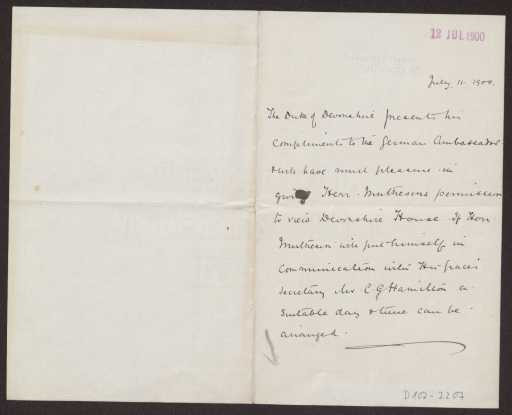 12 JUL 1900
July 11. 1900.
The Duke of Devonshire presents his
compliments to the German Ambassador
& will have much pleasure in
giving Herr Muthesius permission
to view Devonshire House. If Herr
Muthesius will put himself in
communication with His Grace's
Secretary Mr C G Hamilton a
suitable day & time can be
arranged.
D102-2207